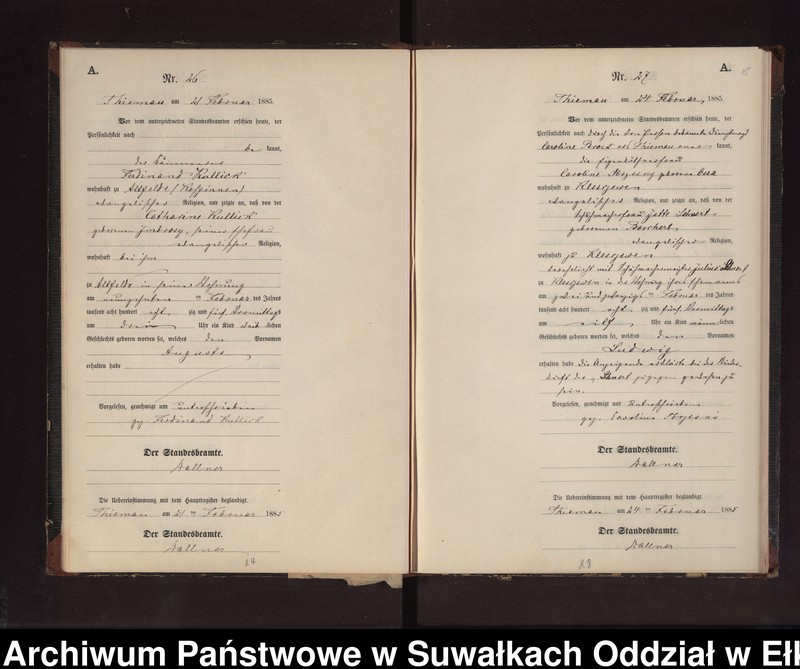 A.
Nr. 26
Thiemau am 21 Februar 1885.
Vor dem unterzeichneten Standesbeamten erschien heute, der
Persönlichkeit nach
be kannt,
der Kämmerer
Ferdinand Kullick
wohnhaft zu Altfelde
evangelischer Religion, und zeigte an, daß von der
Catharine Kullick
geborenen seiner Ehefrau
evangelischer Religion,
wohnhaft bei ihm
zu Altfelde in seiner Wohnung
am neunzehnten ten Februar des Jahres
tausend acht hundert acht zig und fünf Vormittags
um drei Uhr ein Kind weib lichen
Geschlechts geboren worden sei, welches den Vornamen
Auguste
erhalten habe
Vorgelesen, genehmigt und unterschrieben
gez. Ferdinand Kullick
Der Standesbeamte.
Dallner
Die Uebereinstimmung mit dem Hauptregister beglaubigt.
Thiemau am 21 ten Februar 1885
Der Standesbeamte.
Dallner
A.
Nr. 27
Thiemau am 24 Februar, 1885
Vor dem unterzeichneten Standesbeamten erschien heute, der
Persönlichkeit nach durch die von Person bekannte
Caroline aus Thiemau aner kannt,
die
Caroline geborene
wohnhaft zu Kleszewen
evangelischer Religion, und zeigte an, daß von der
Schuhmacherfrau Jette
geborenen Borchert,
evangelischer Religion,
wohnhaft zu Kleszewen
verehelicht mit Schuhmachermeister Julius
zu Kleszewen in der Wohnung ihres Ehemannes
am zwei und zwanzigs ten Februar des Jahres
tausend acht hundert acht zig und fünf Vormittags
um eilf Uhr ein Kind männ lichen
Geschlechts geboren worden sei, welches den Vornamen
Ludwig
erhalten habe die Anzeigende erklärte bei der Nieder
kunft der zugegen gewesen zu
sein.
Vorgelesen, genehmigt und unterschrieben
gez. Caroline
Der Standesbeamte.
Dallner
Die Uebereinstimmung mit dem Hauptregister beglaubigt.
Thiemau am 24 ten Februar 1885
Der Standesbeamte.
Dallner
Archiwum Państwowe w Suwałkach Oddział w Eł